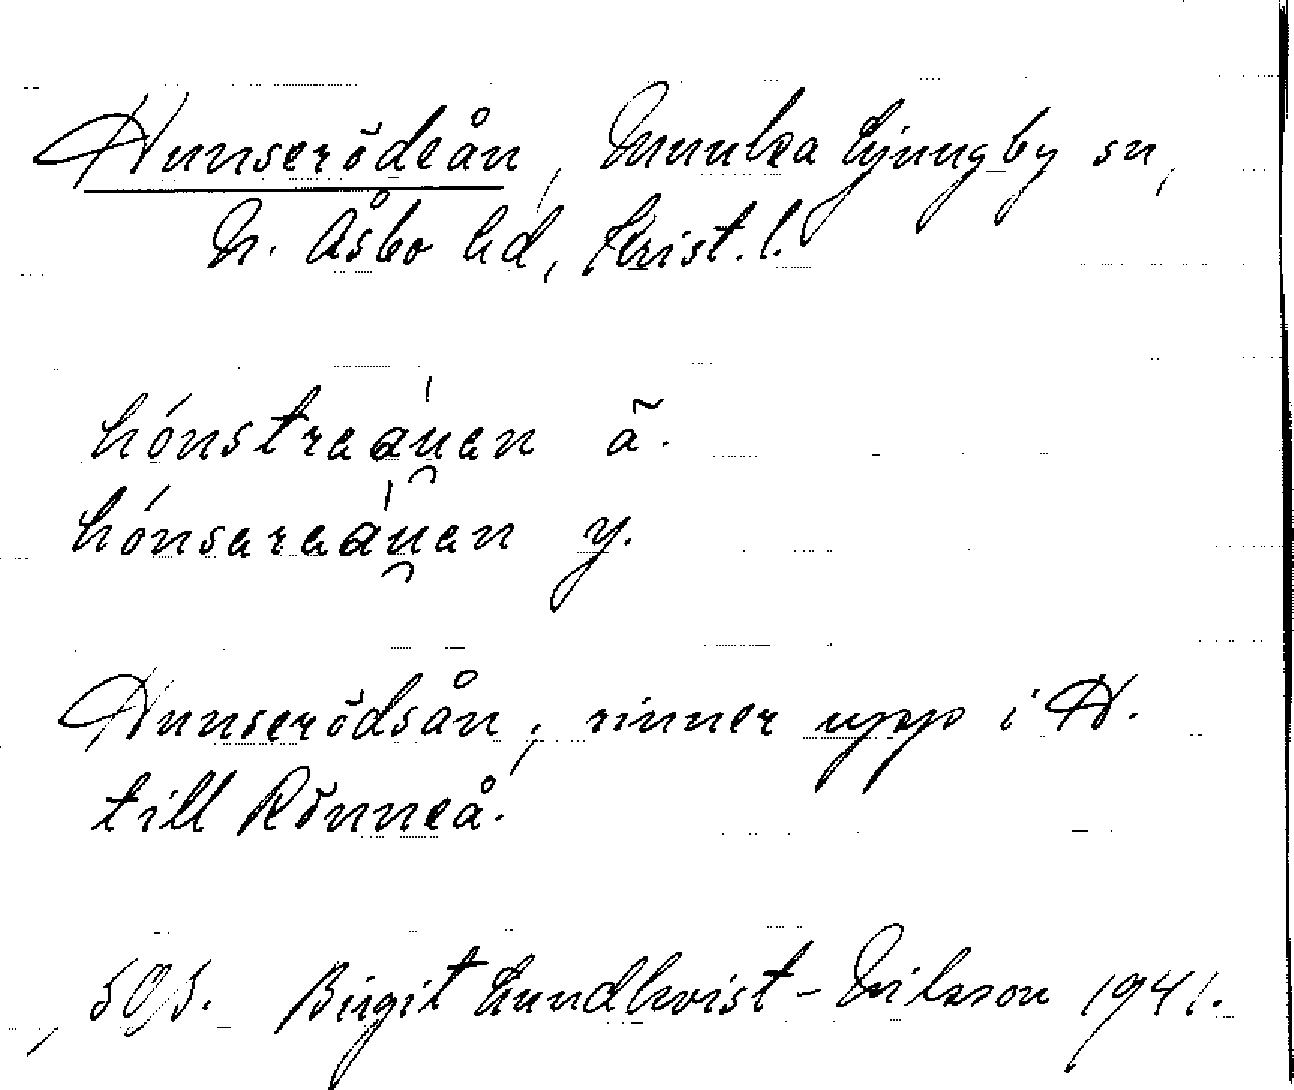 Hunserödeån, Munka Ljungby sn,
N. Åsbo hd, Krist. l.
hónstraáu̯an ä.
hónsaraáu̯an y.
Hunserödsån; rinner upp i H.
till Rönneå.
Birgit Lundkvist-Nilsson 1941.